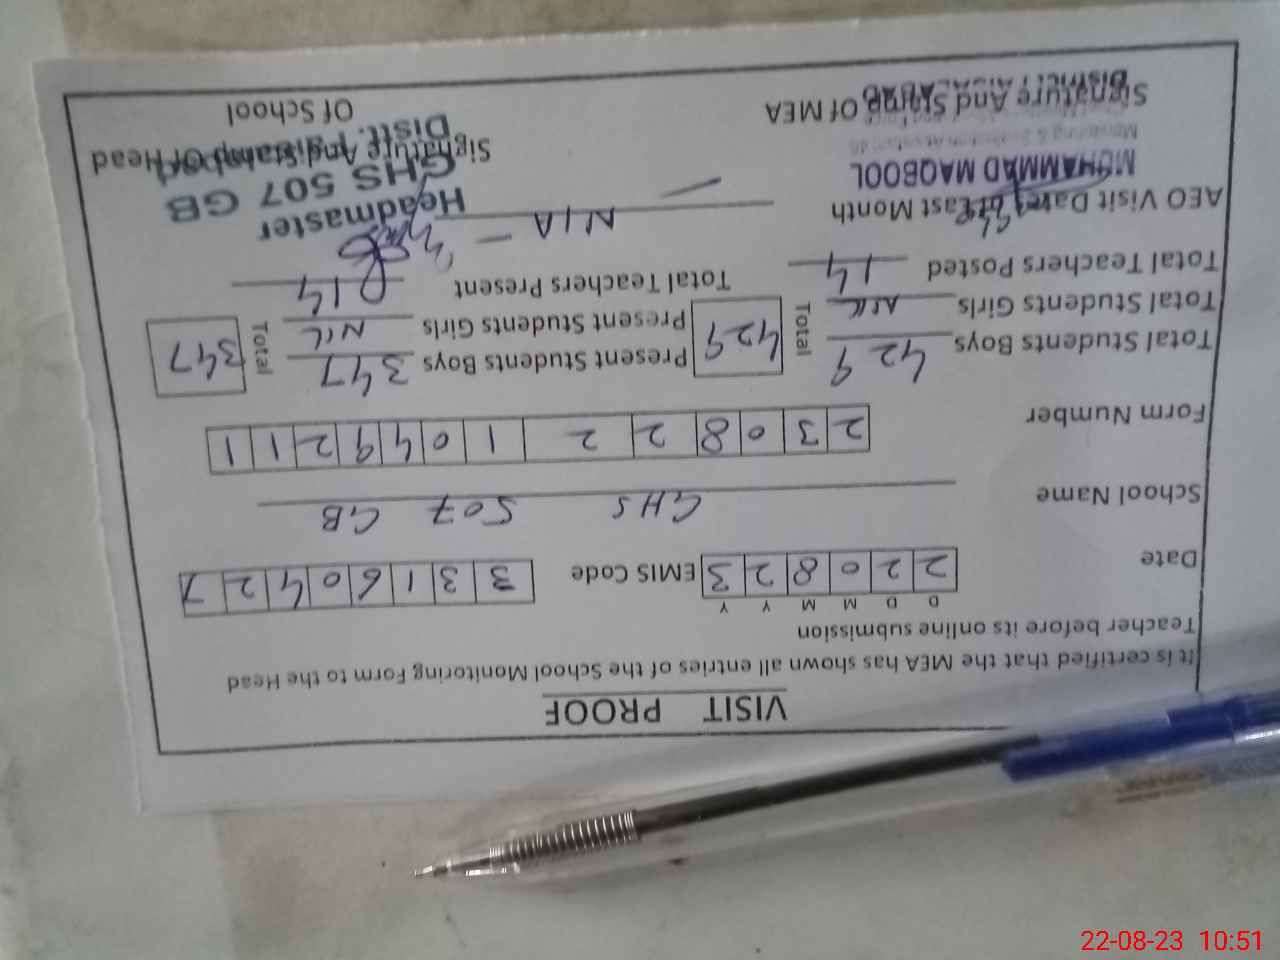 VISIT PROOF
It is certified that the MEA has shown all entries of the School Monitoring Form to the Head
Teacher before its online submission
D D M M Y Y
Date 2 2 0 8 2 3 EMIS Code 3 3 1 6 0 4 2 7
School Name GHS 507 GB
Form Number 2 3 0 8 2 2 1 0 4 9 2 1 1
Total Students Boys 429 Total 429 Present Students Boys 347 Total 347
Total Students Girls Nil Present Students Girls Nil
Total Teachers Posted 14 Total Teachers Present 14
AEO Visit Date of Last Month N/A
Headmaster
GHS 507 GB
MUHAMMAD MAQBOOL
Signature And Stamp Of MEA
Signature And Stamp Of Head
Of School
22-08-23 10:51